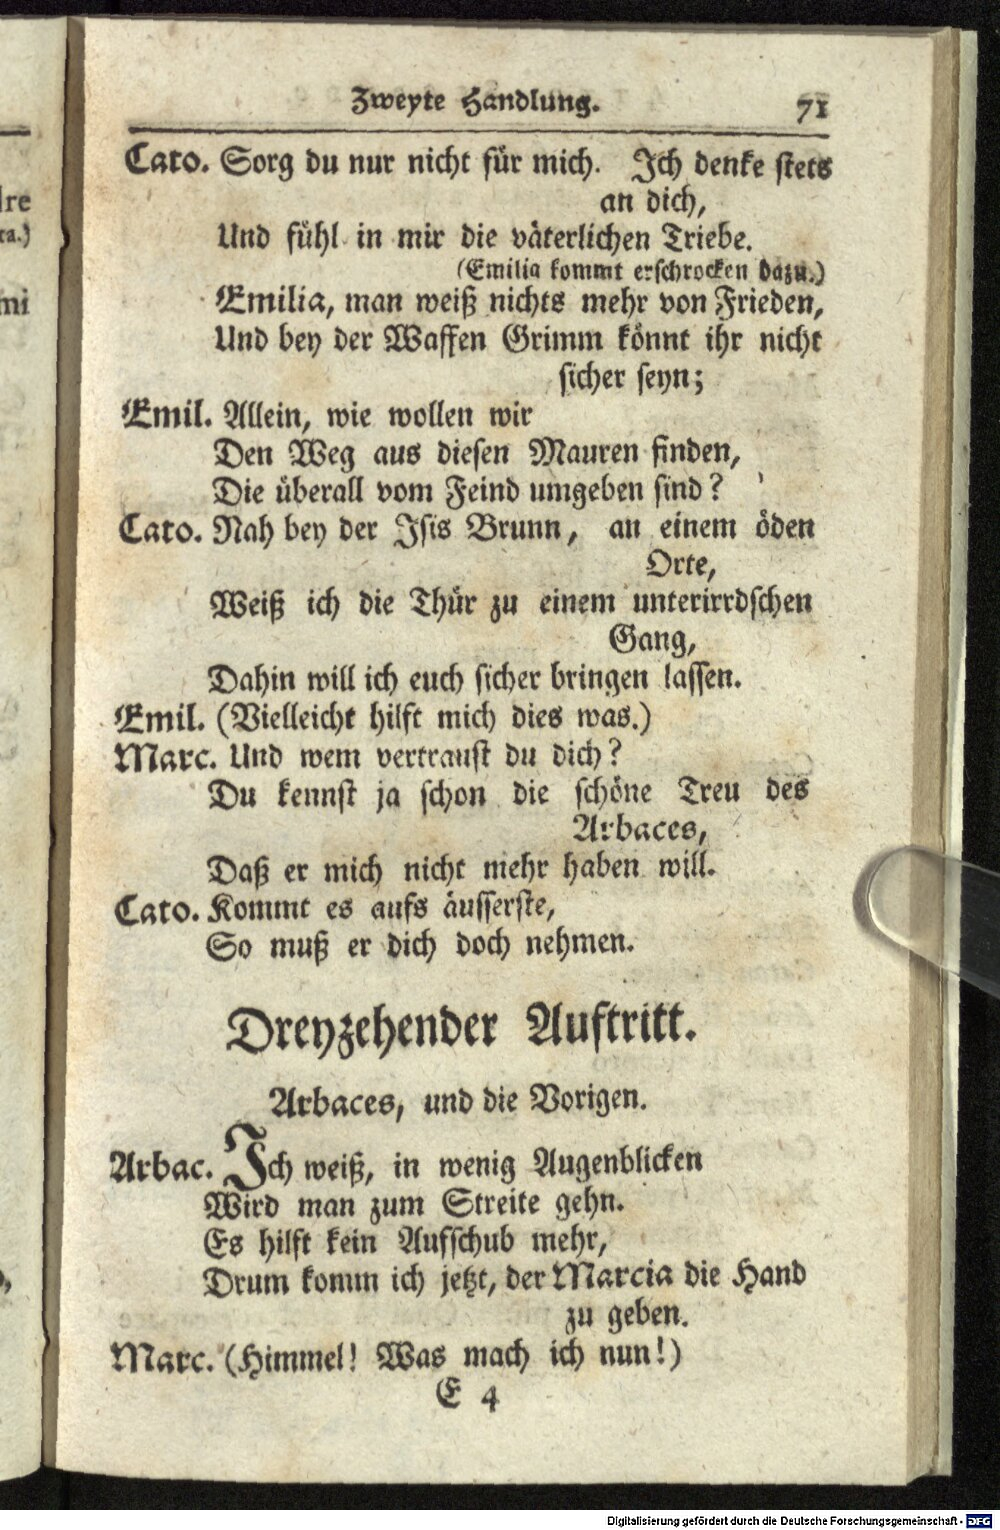 Zweyte Handlung. 71
Cato. Sorg du nur nicht für mich. Ich denke stets
an dich,
Und fühl in mir die väterlichen Triebe.
(Emilia kommt erschrocken dazu.)
Emilia, man weiß nichts mehr von Frieden,
Und bey der Waffen Grimm könnt ihr nicht
sicher seyn;
Emil. Allein, wie wollen wir
Den Weg aus diesen Mauren finden,
Die überall vom Feind umgeben sind?
Cato. Nah bey der Isis Brunn, an einem öden
Orte,
Weiß ich die Thür zu einem unterirrdschen
Gang,
Dahin will ich euch sicher bringen lassen.
Emil. (Vielleicht hilft mich dies was.)
Marc. Und wem vertraust du dich?
Du kennst ja schon die schöne Treu des
Arbaces,
Daß er mich nicht mehr haben will.
Cato. Kommt es aufs äusserste,
So muß er dich doch nehmen.
Dreyzehender Auftritt.
Arbaces, und die Vorigen.
Arbac. Ich weiß, in wenig Augenblicken
Wird man zum Streite gehn.
Es hilft kein Aufschub mehr,
Drum komm ich jetzt, der Marcia die Hand
zu geben.
Marc. (Himmel! Was mach ich nun!)
E 4
lre
ta.)
mi
Digitalisierung gefördert durch die Deutsche Forschungsgemeinschaft - DFG